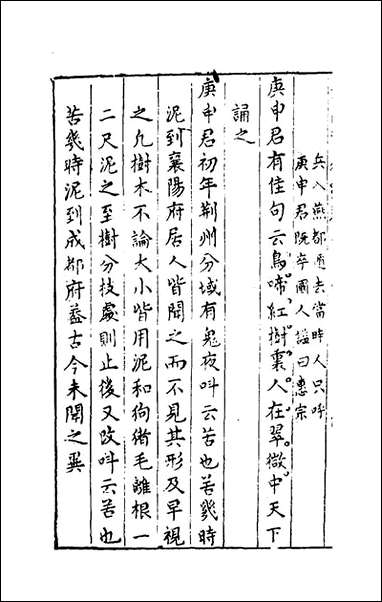 兵入燕都遁去當時人只呼
庚申君既卒國人諡曰惠宗
庚申君有佳句云鳥啼紅樹裏人在翠微中天下
誦之
庚申君初年荆州分域有鬼夜呌云苦也苦幾時
泥到襄陽府居人皆聞之而不見其形及早視
之凢樹木不論大小皆用泥和狗猪毛離根一
二尺泥之至樹分枝處則止後又改呌云苦也
苦幾時泥到成都府葢古今未聞之異